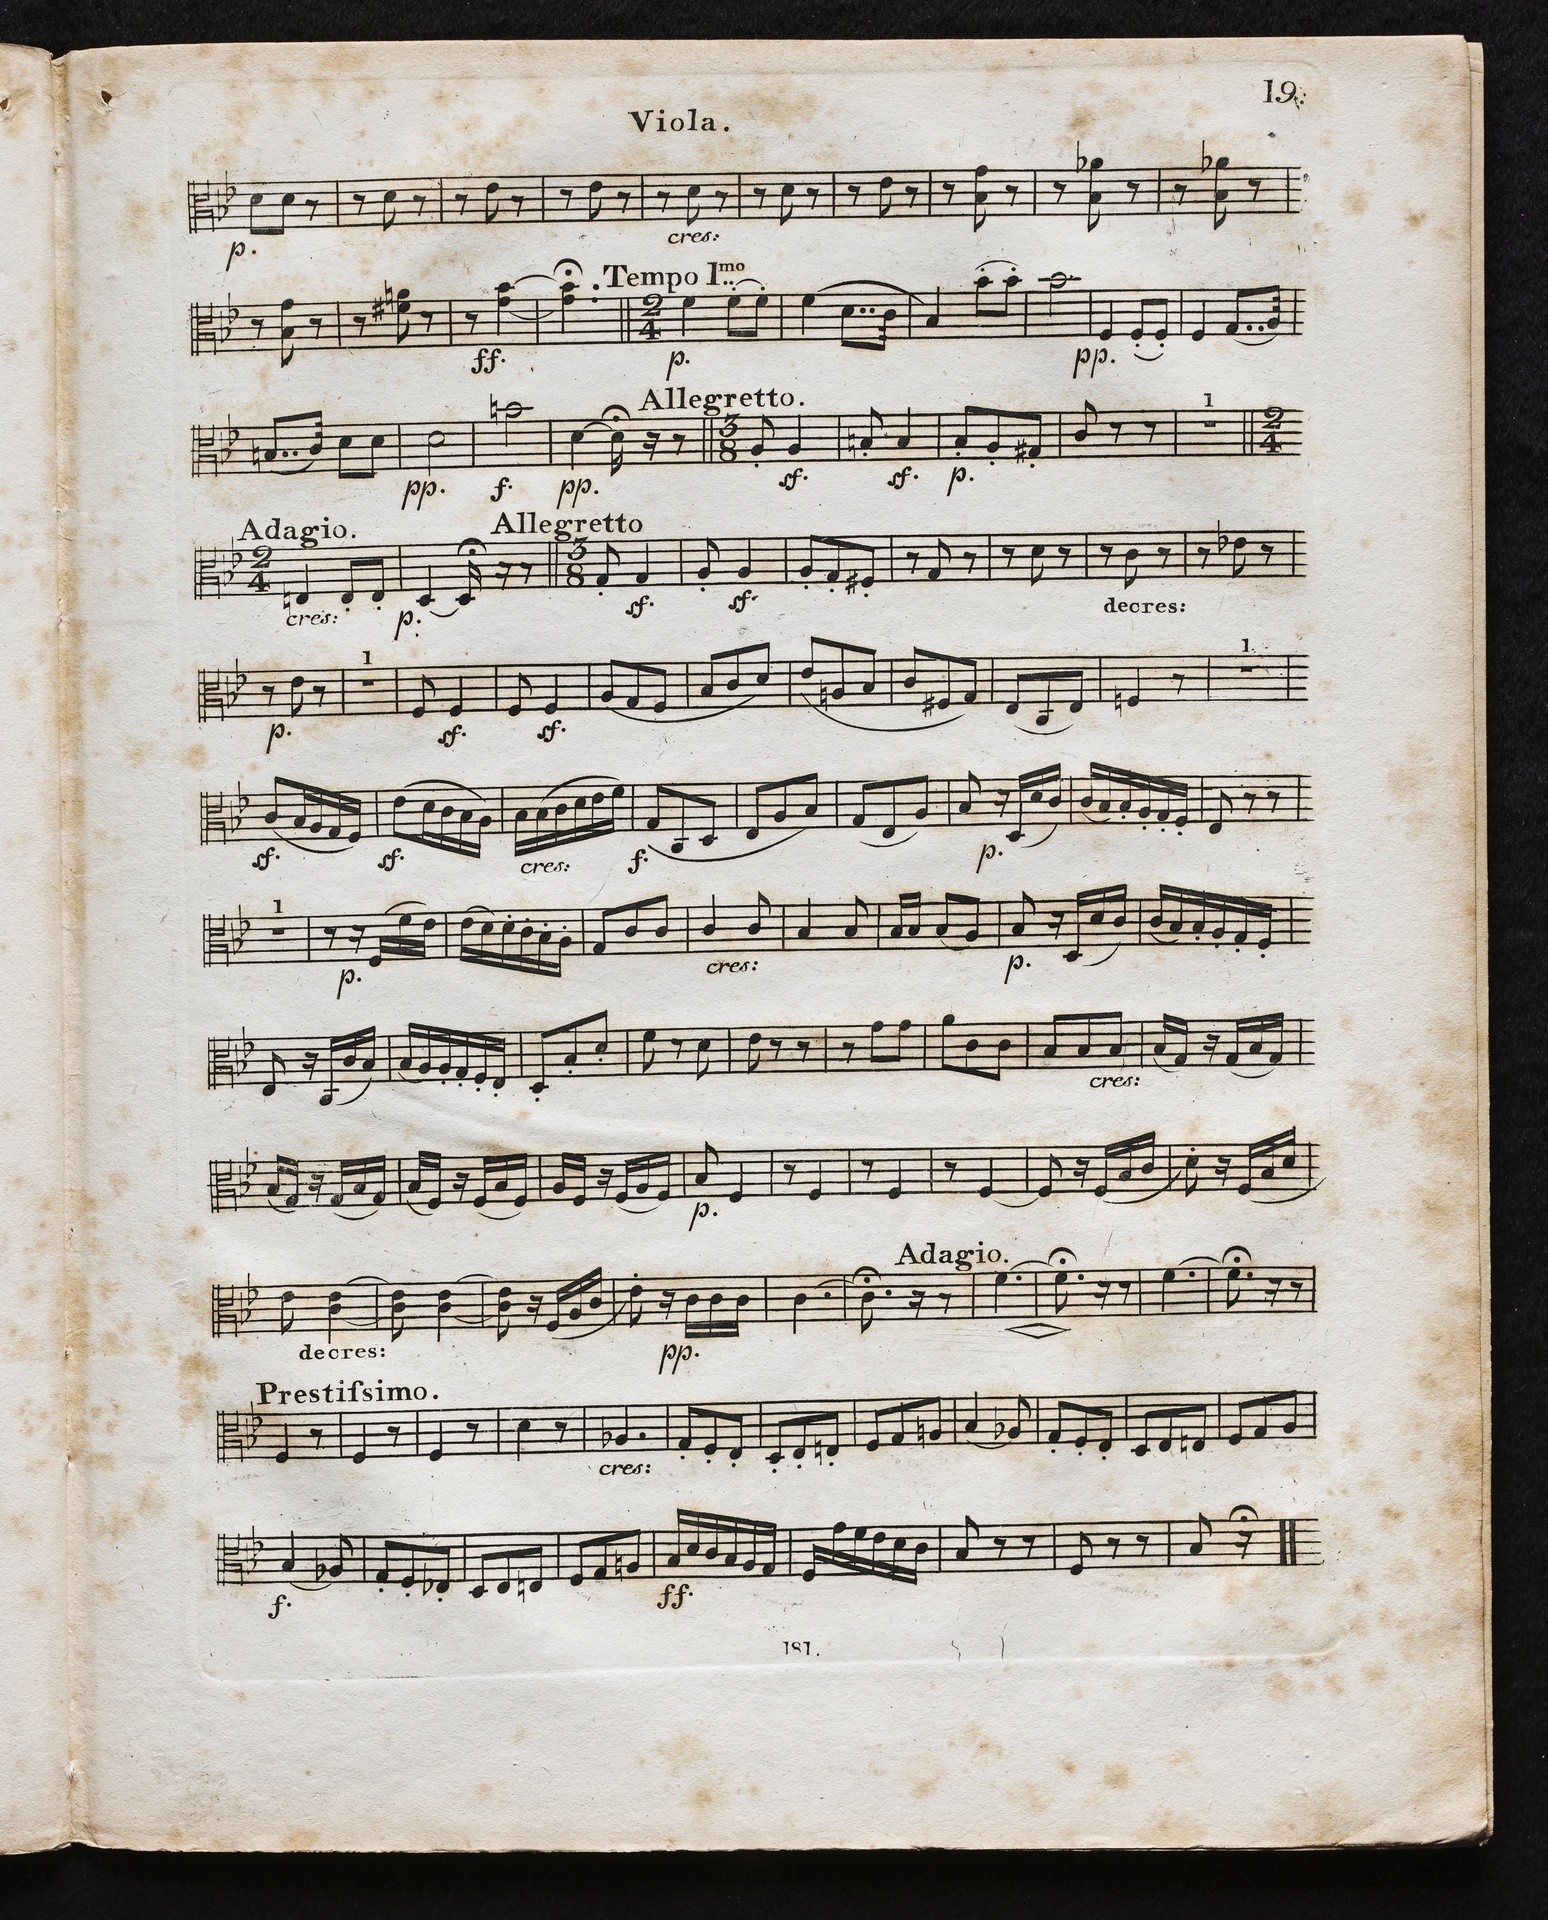 19.
Viola.
p. cres:
Tempo 1mo
2 4
ff. p. pp.
Allegretto.
3 8 1 2 4
pp. f. pp. sf. sf. p.
Adagio. Allegretto
2 4 3 8
cres: p. sf. sf. decres:
1 1
p. sf. sf.
sf. sf. cres: f. p.
1
p. cres: p.
cres:
p.
Adagio.
decres: pp.
Prestiſsimo.
cres:
f. ff.
181.